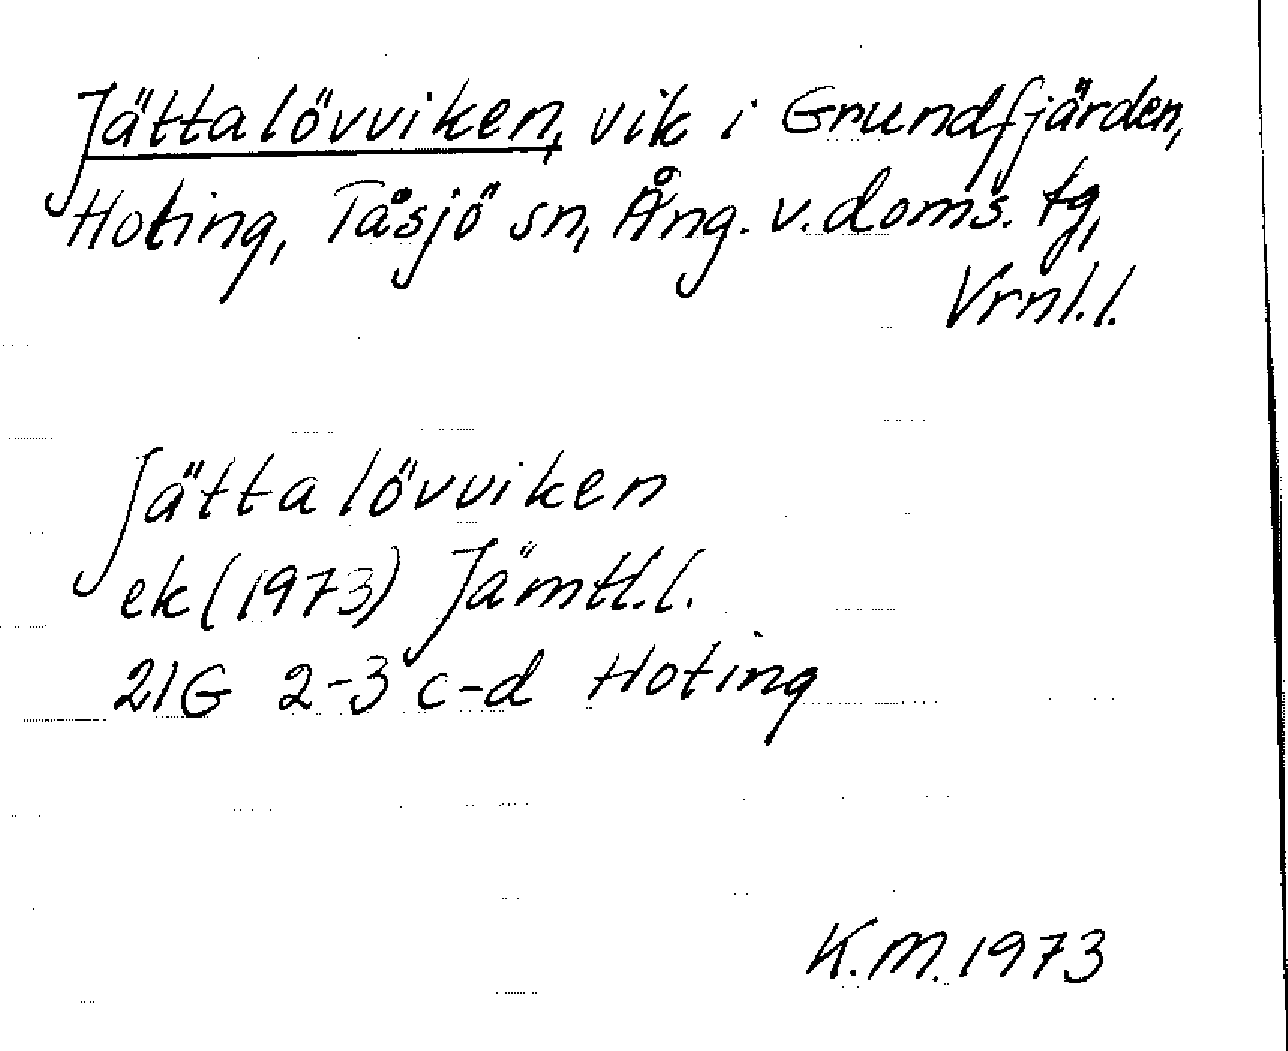 Jättalövviken, vik i Grundfjärden,
Hoting, Tåsjö sn, Ång. v. doms. tg,
Vrnl.l.
Jättalövviken
ek (1973) Jämtl.l.
21G 2-3 c-d Hoting
K.M. 1973